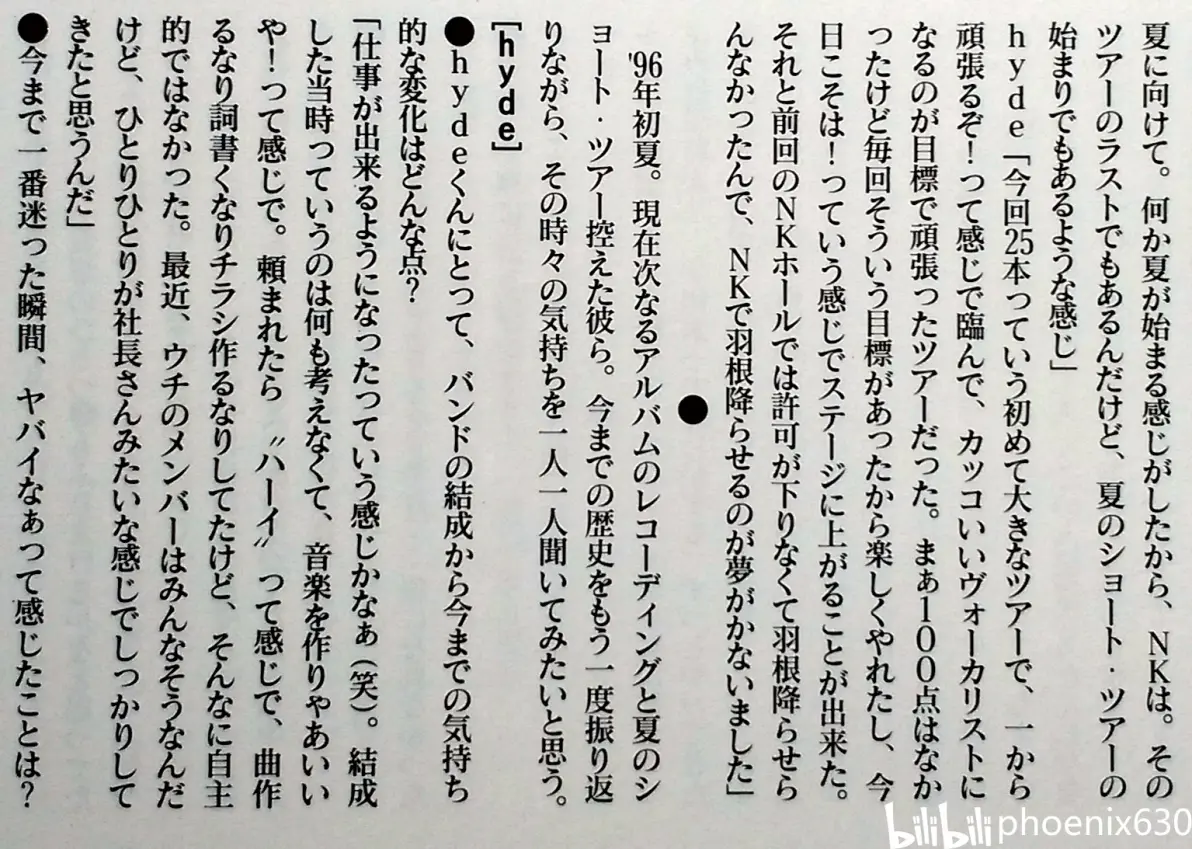 夏に向けて。何か夏が始まる感じがしたから、NKは。その
ツアーのラストでもあるんだけど、夏のショート・ツアーの
始まりでもあるような感じ」
hyde「今回25本っていう初めて大きなツアーで、一から
頑張るぞ!って感じで臨んで、カッコいいヴォーカリストに
なるのが目標で頑張ったツアーだった。まぁ100点はなか
ったけど毎回そういう目標があったから楽しくやれたし、今
日こそは!っていう感じでステージに上がることが出来た。
それと前回のNKホールでは許可が下りなくて羽根降らせら
んなかったんで、NKで羽根降らせるのが夢がかないました」
●
'96年初夏。現在次なるアルバムのレコーディングと夏のシ
ョート・ツアー控えた彼ら。今までの歴史をもう一度振り返
りながら、その時々の気持ちを一人一人聞いてみたいと思う。
[hyde]
●hydeくんにとって、バンドの結成から今までの気持ち
的な変化はどんな点?
「仕事が出来るようになったっていう感じかなぁ(笑)。結成
した当時っていうのは何も考えなくて、音楽を作りゃあいい
や!って感じで。頼まれたら〝ハーイ〟って感じで、曲作
るなり詞書くなりチラシ作るなりしてたけど、そんなに自主
的ではなかった。最近、ウチのメンバーはみんなそうなんだ
けど、ひとりひとりが社長さんみたいな感じでしっかりして
きたと思うんだ」
●今まで一番迷った瞬間、ヤバイなぁって感じたことは?
bilibili phoenix630